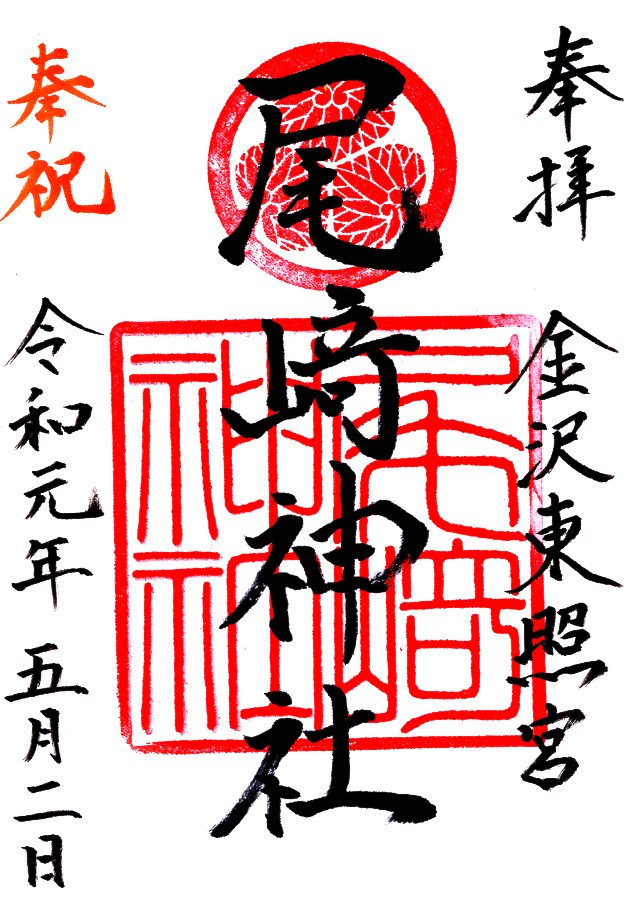 奉拝
金沢東照宮
尾崎神社
尾崎神社
奉祝
令和元年 五月二日